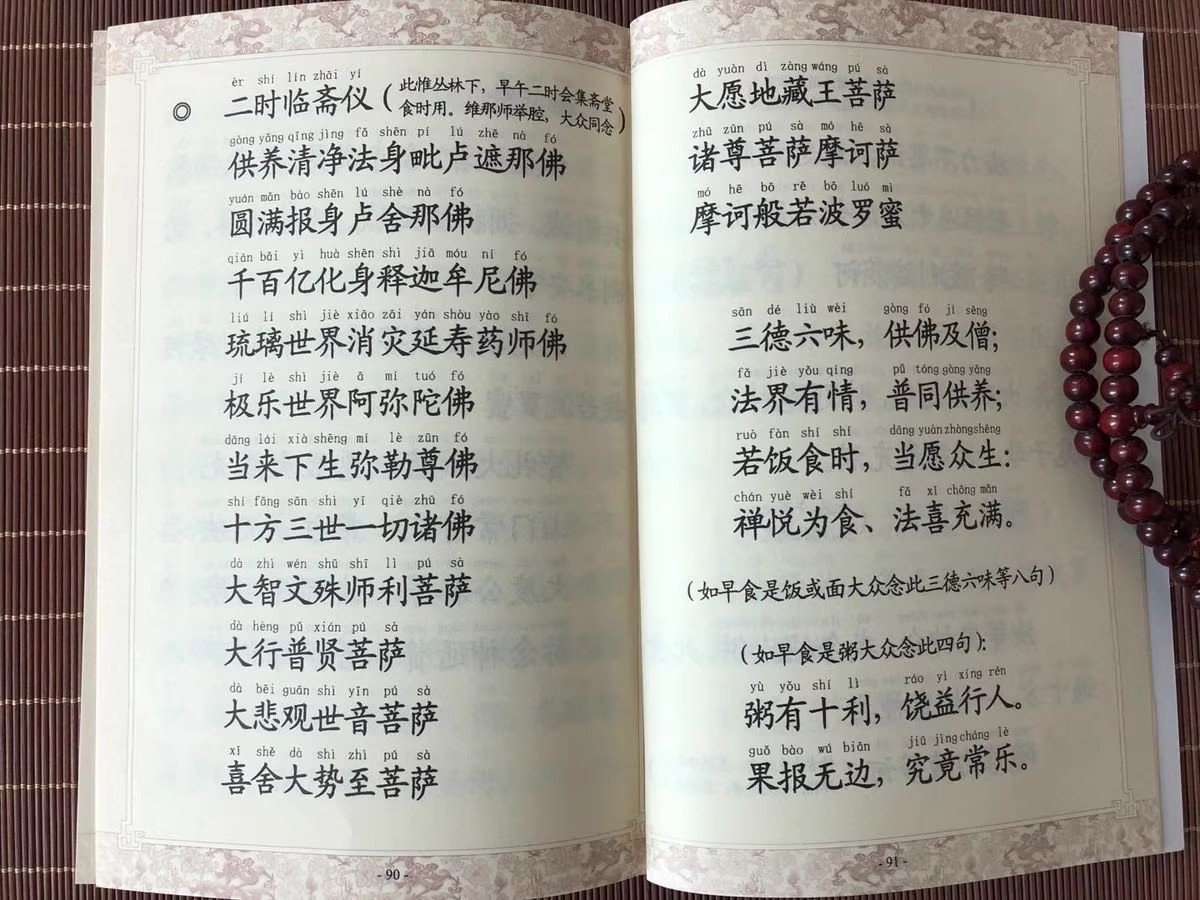 èr shí lín zhāi yí
◎ 二时临斋仪（此惟丛林下，早午二时会集斋堂
食时用。维那师举腔，大众同念）
gòng yǎng qīng jìng fǎ shēn pí lú zhē nà fó
供养清净法身毗卢遮那佛
yuán mǎn bào shēn lú shè nà fó
圆满报身卢舍那佛
qiān bǎi yì huà shēn shì jiā móu ní fó
千百亿化身释迦牟尼佛
liú lí shì jiè xiāo zāi yán shòu yào shī fó
琉璃世界消灾延寿药师佛
jí lè shì jiè ā mí tuó fó
极乐世界阿弥陀佛
dāng lái xià shēng mí lè zūn fó
当来下生弥勒尊佛
shí fāng sān shì yī qiè zhū fó
十方三世一切诸佛
dà zhì wén shū shī lì pú sà
大智文殊师利菩萨
dà hèng pǔ xián pú sà
大行普贤菩萨
dà bēi guān shì yīn pú sà
大悲观世音菩萨
xǐ shě dà shì zhì pú sà
喜舍大势至菩萨
- 90 -
dà yuàn dì zàng wáng pú sà
大愿地藏王菩萨
zhū zūn pú sà mó hē sà
诸尊菩萨摩诃萨
mó hē bō rě bō luó mì
摩诃般若波罗蜜
sān dé liù wèi gòng fó jí sēng
三德六味，供佛及僧；
fǎ jiè yǒu qíng pǔ tóng gòng yǎng
法界有情，普同供养；
ruò fàn shí shí dāng yuàn zhòng shēng
若饭食时，当愿众生：
chán yuè wéi shí fǎ xǐ chōng mǎn
禅悦为食、法喜充满。
（如早食是饭或面大众念此三德六味等八句）
（如早食是粥大众念此四句）：
yù yǒu shí lì ráo yì xíng rén
粥有十利，饶益行人。
guǒ bào wú biān jiū jìng cháng lè
果报无边，究竟常乐。
- 91 -